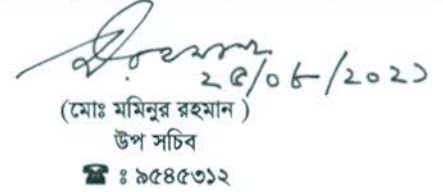 ২৫/০৮/২০২১
(মোঃ মমিনুর রহমান )
উপ সচিব
☎ ঃ ৯৫৪৫৩১২